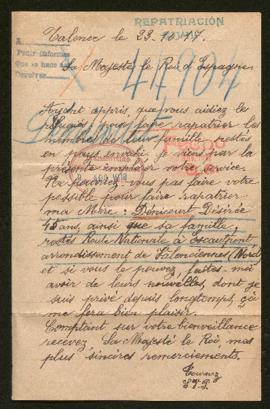 REPATRIACIÓN
Talence le 23.
Sa Majesté le Roi d'Espagne
41904
Ayant appris que vous aidiez les
réfugiés pour faire rapatrier les
membres de leur famille restés
en pays envahi je viens par la
présente
Ne pourriez vous pas faire votre
possible pour faire rapatrier
ma Mère: Dénicourt Désirée
45 ans, ainsi que sa famille,
restés Route Nationale à Escautpont
arrondissement de Valenciennes (Nord)
et si vous le pouvez, faites moi
avoir de leurs nouvelles, dont je
suis privé depuis longtemps, ça
me fera bien plaisir.
Comptant sur votre bienveillance
recevez Sa Majesté le Roi, mes
plus sincères remerciements.